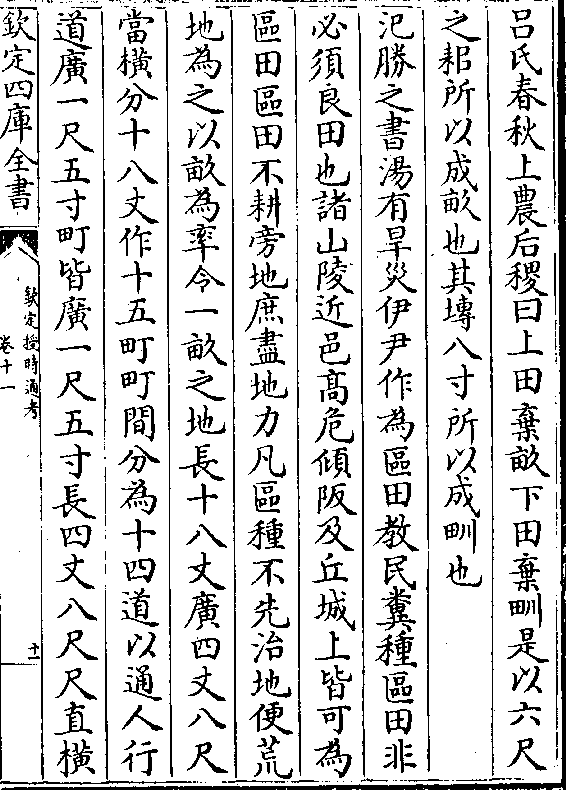 呂氏春秋上農后稷曰上田棄畝下田棄甽是以六尺
之耜所以成畝也其塼八寸所以成甽也
氾勝之書湯有旱災伊尹作為區田教民糞種區田非
必須良田也諸山陵近邑髙危傾阪及丘城上皆可為
區田區田不耕旁地庶盡地力凡區種不先治地便荒
地為之以畝為率令一畝之地長十八丈廣四丈八尺
當橫分十八丈作十五町町間分為十四道以通人行
道廣一尺五寸町皆廣一尺五寸長四丈八尺尺直橫
欽定四庫全書
欽定授時通考
卷十一
十一